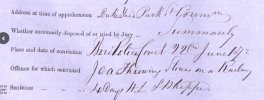 Address at time of apprehension Park St
Whether summarily disposed of or tried by Jury ... Summarily
Place and date of conviction Police Court 22nd June 
Offence for which convicted Throwing Stones on a Railway
Sentence ... 4 days H L & Whipped